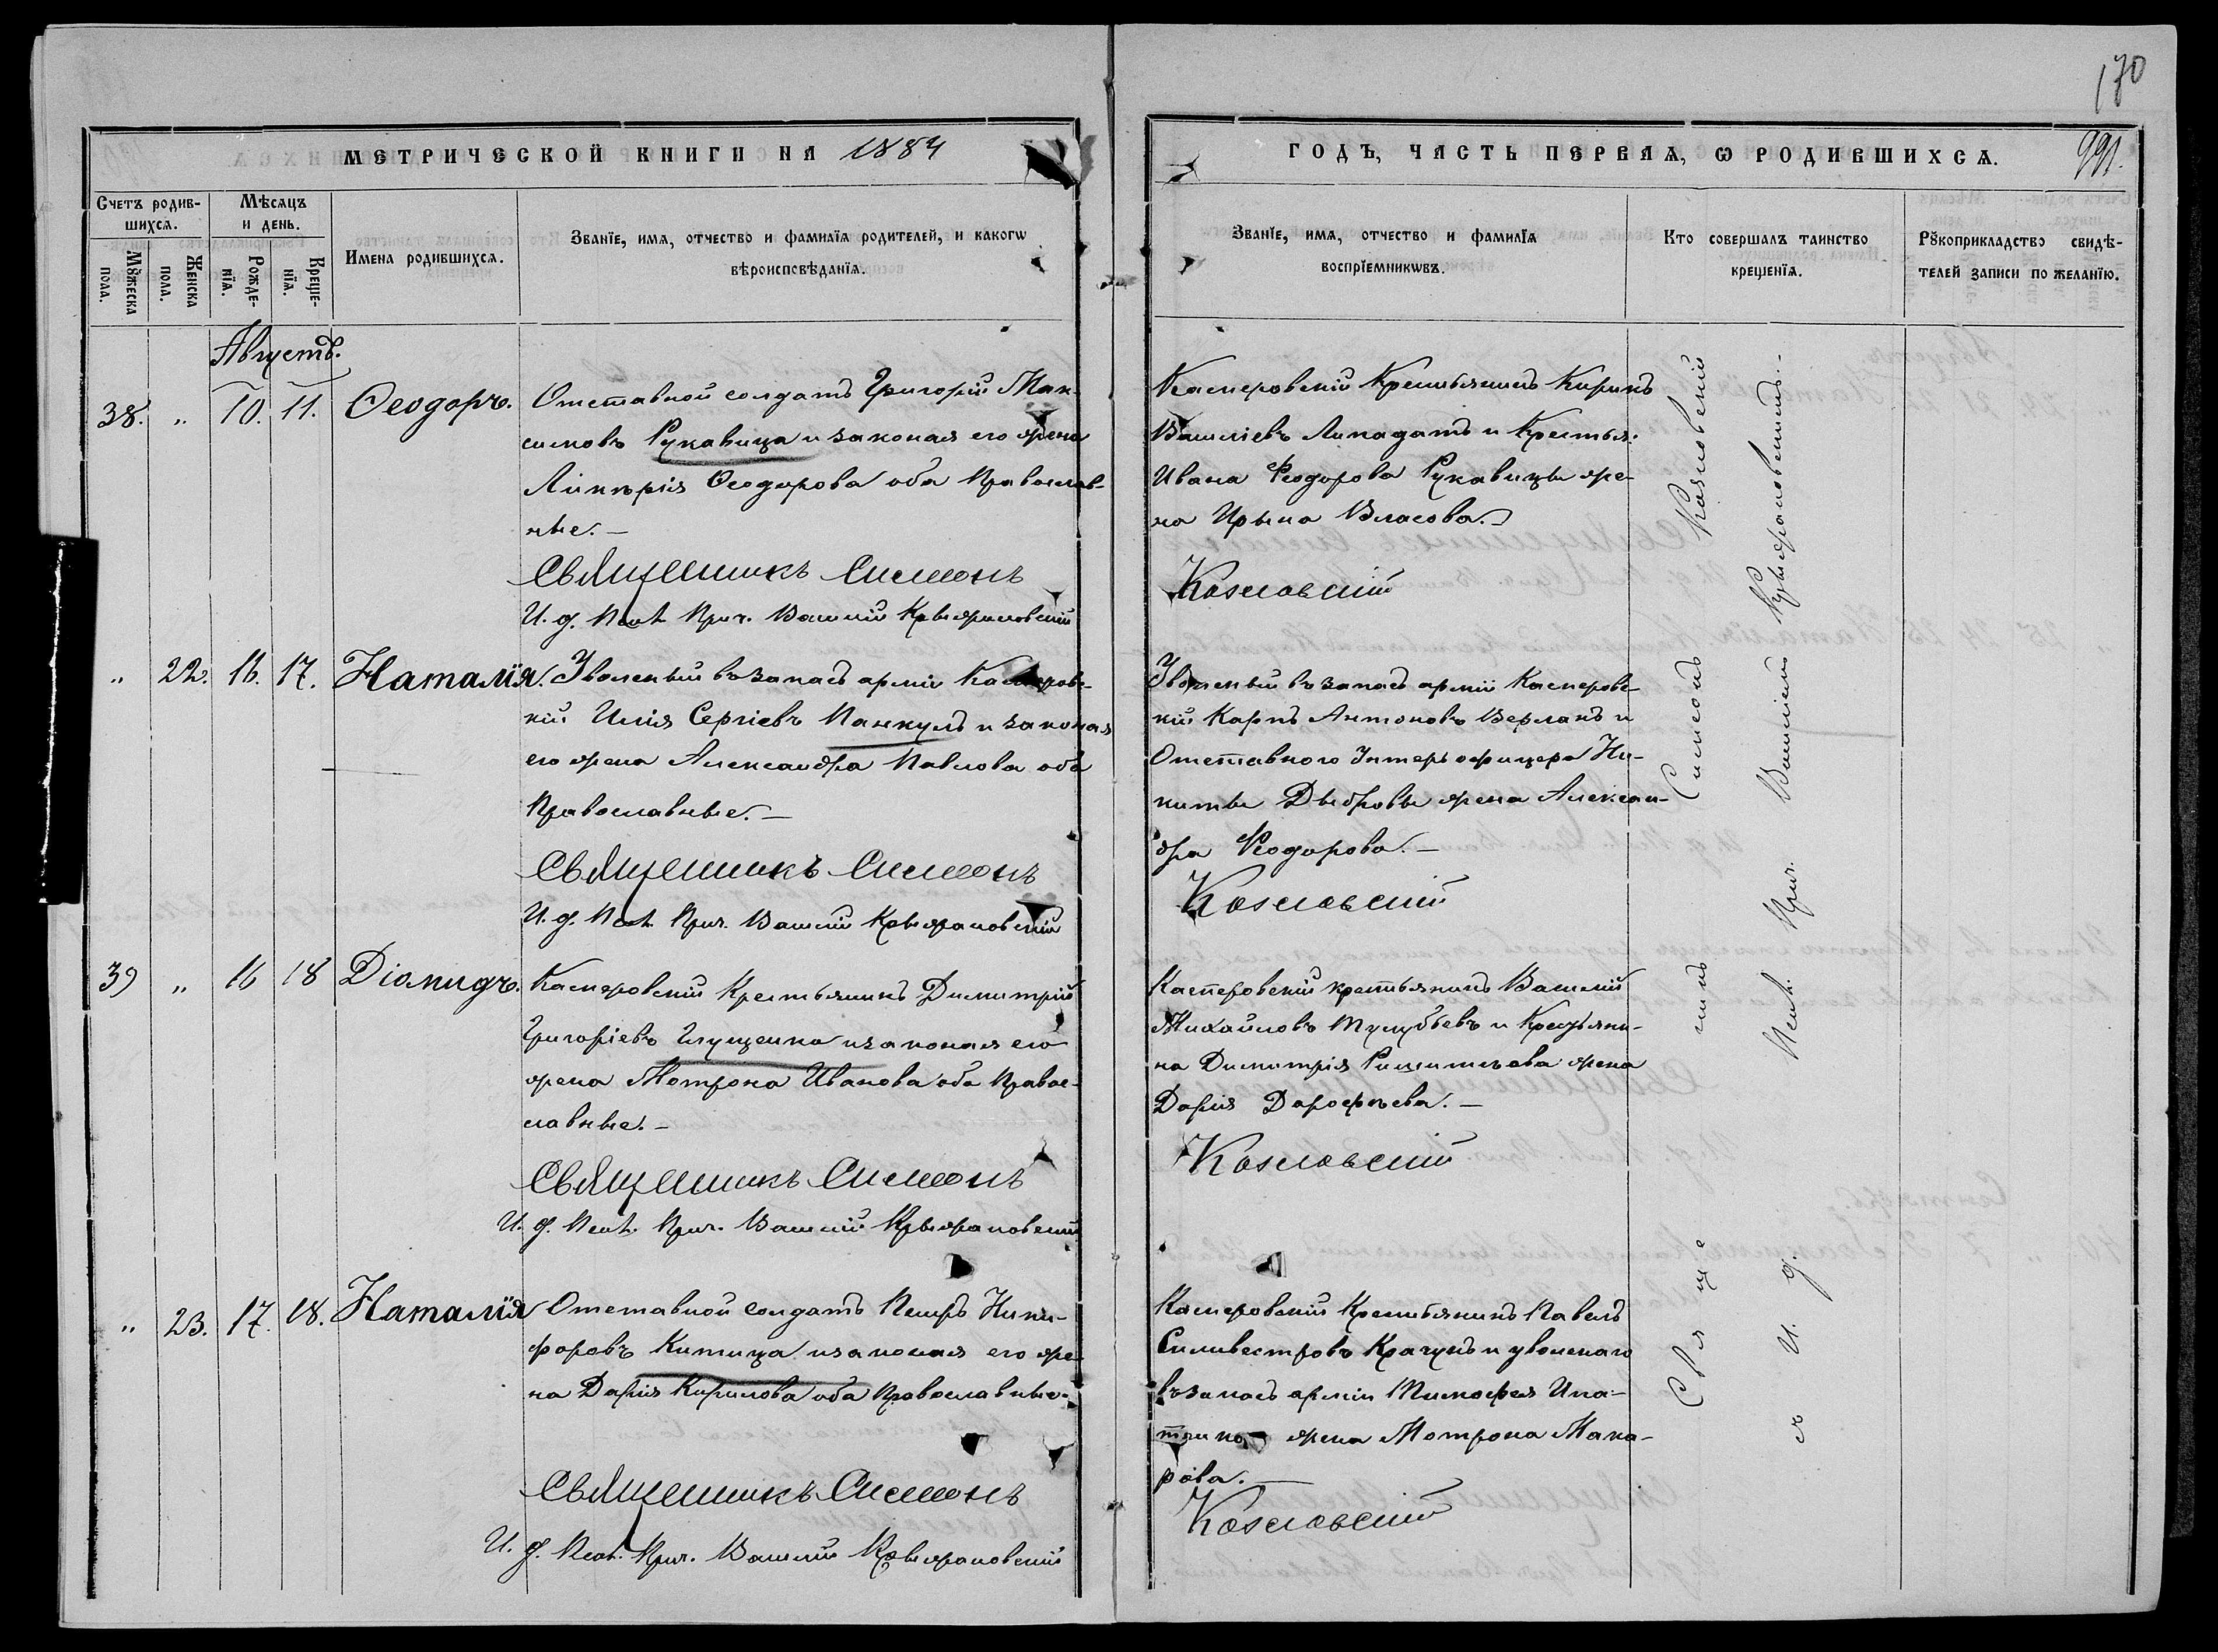 170
МЕТРИЧЕСКОЙ КНИГИ НА 1884
ГОДЪ, ЧАСТЬ ПЕРВАЯ, Ѡ РОДИВШИХСѦ.
991.
Счетъ родив-
шихсѧ.
Мѣсѧцъ
и день.
Мꙋжеска
пола.
Женска
пола.
Рожде-
нїѧ.
Креще-
нїѧ.
Имена родившихсѧ.
Званїе, имѧ, отчество и фамилїѧ родителей, и какогѡ
вѣроисповѣданїѧ.
Званїе, имѧ, отчество и фамилїѧ
воспрїемникѡвъ.
Кто совершалъ таинство
крещенїѧ.
Рꙋкоприкладство свидѣ-
телей записи по желанїю.
Августъ.
38. " 10. 11. Ѳеодоръ.
Отставной солдатъ Григорій Мак-
симовъ Рукавица и законая его жена
Ѳеодорова оба Православ-
ные. —
Священникъ Симеонъ
И. д. Псал. Прич. Василій Крыжановскій
Касперовскій Крестьянинъ Кирикъ
Василіевъ Липадатъ и Крестья:
Ивана Ѳеодорова Рукавицы же-
на Ирина Власова. —
Козловскій
" 22. 16. 17. Наталія.
Уволеный въ запасъ арміи Касперовс-
кій Илія Сергіевъ Панкулъ и законая
его жена Александра Павлова оба
Православные. —
Священникъ Симеонъ
И. д. Псал. Прич. Василій Крыжановскій
Уволеный въ запасъ арміи Касперовс-
кій Карпъ Антоновъ Верланъ и
Отставного Унтеръ офицера Ни-
киты Дыбровы жена Алексан-
дра Ѳеодорова. —
Козловскій
39 " 16 18 Діамидъ.
Касперовскій Крестьянинъ Димитрій
Григоріевъ Глущенко и законая его
жена Мотрона Иванова оба Правос-
лавные. —
Священникъ Симеонъ
И. д. Псал. Прич. Василій Крыжановскій
Касперовскій крестьянинъ Василій
Михайловъ и Крестьяни-
на Димитрія жена
Дарія Дорофѣева. —
Козловскій
" 23. 17. 18. Наталія
Отставной солдатъ Петръ Ники-
форовъ Китица и законая его же-
на Дарія Кирилова оба Православные.
Священникъ Симеонъ
И. д. Псал. Прич. Василій Крыжановскій
Касперовскій Крестьянинъ Павелъ
Силивестровъ Крачунъ и уволенаго
въ запасъ арміи Тимофея
жена Мотрона Мака-
рова. —
Козловскій
Священникъ Симеонъ Козловскій
съ И. д. Псал. Прич. Василіемъ Крыжановскимъ. —